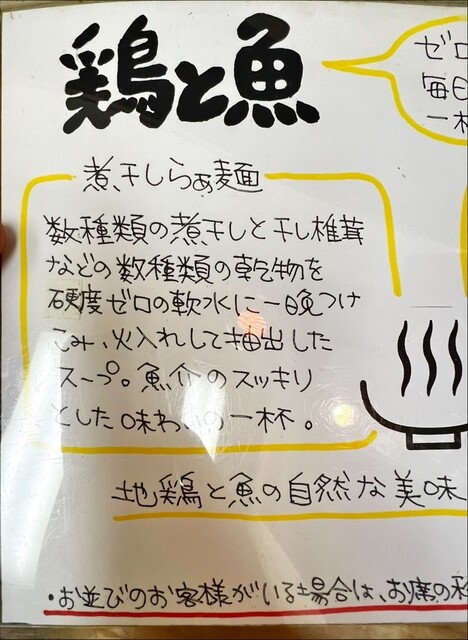 鶏と魚
ゼロ
毎日
一杯
煮干しらぁ麺
数種類の煮干しと干し椎茸
などの数種類の乾物を
硬度ゼロの軟水に一晩つけ
こみ、火入れして抽出した
スープ。魚介のスッキリ
とした味わいの一杯。
地鶏と魚の自然な美味
・お並びのお客様がいる場合は、お席の移